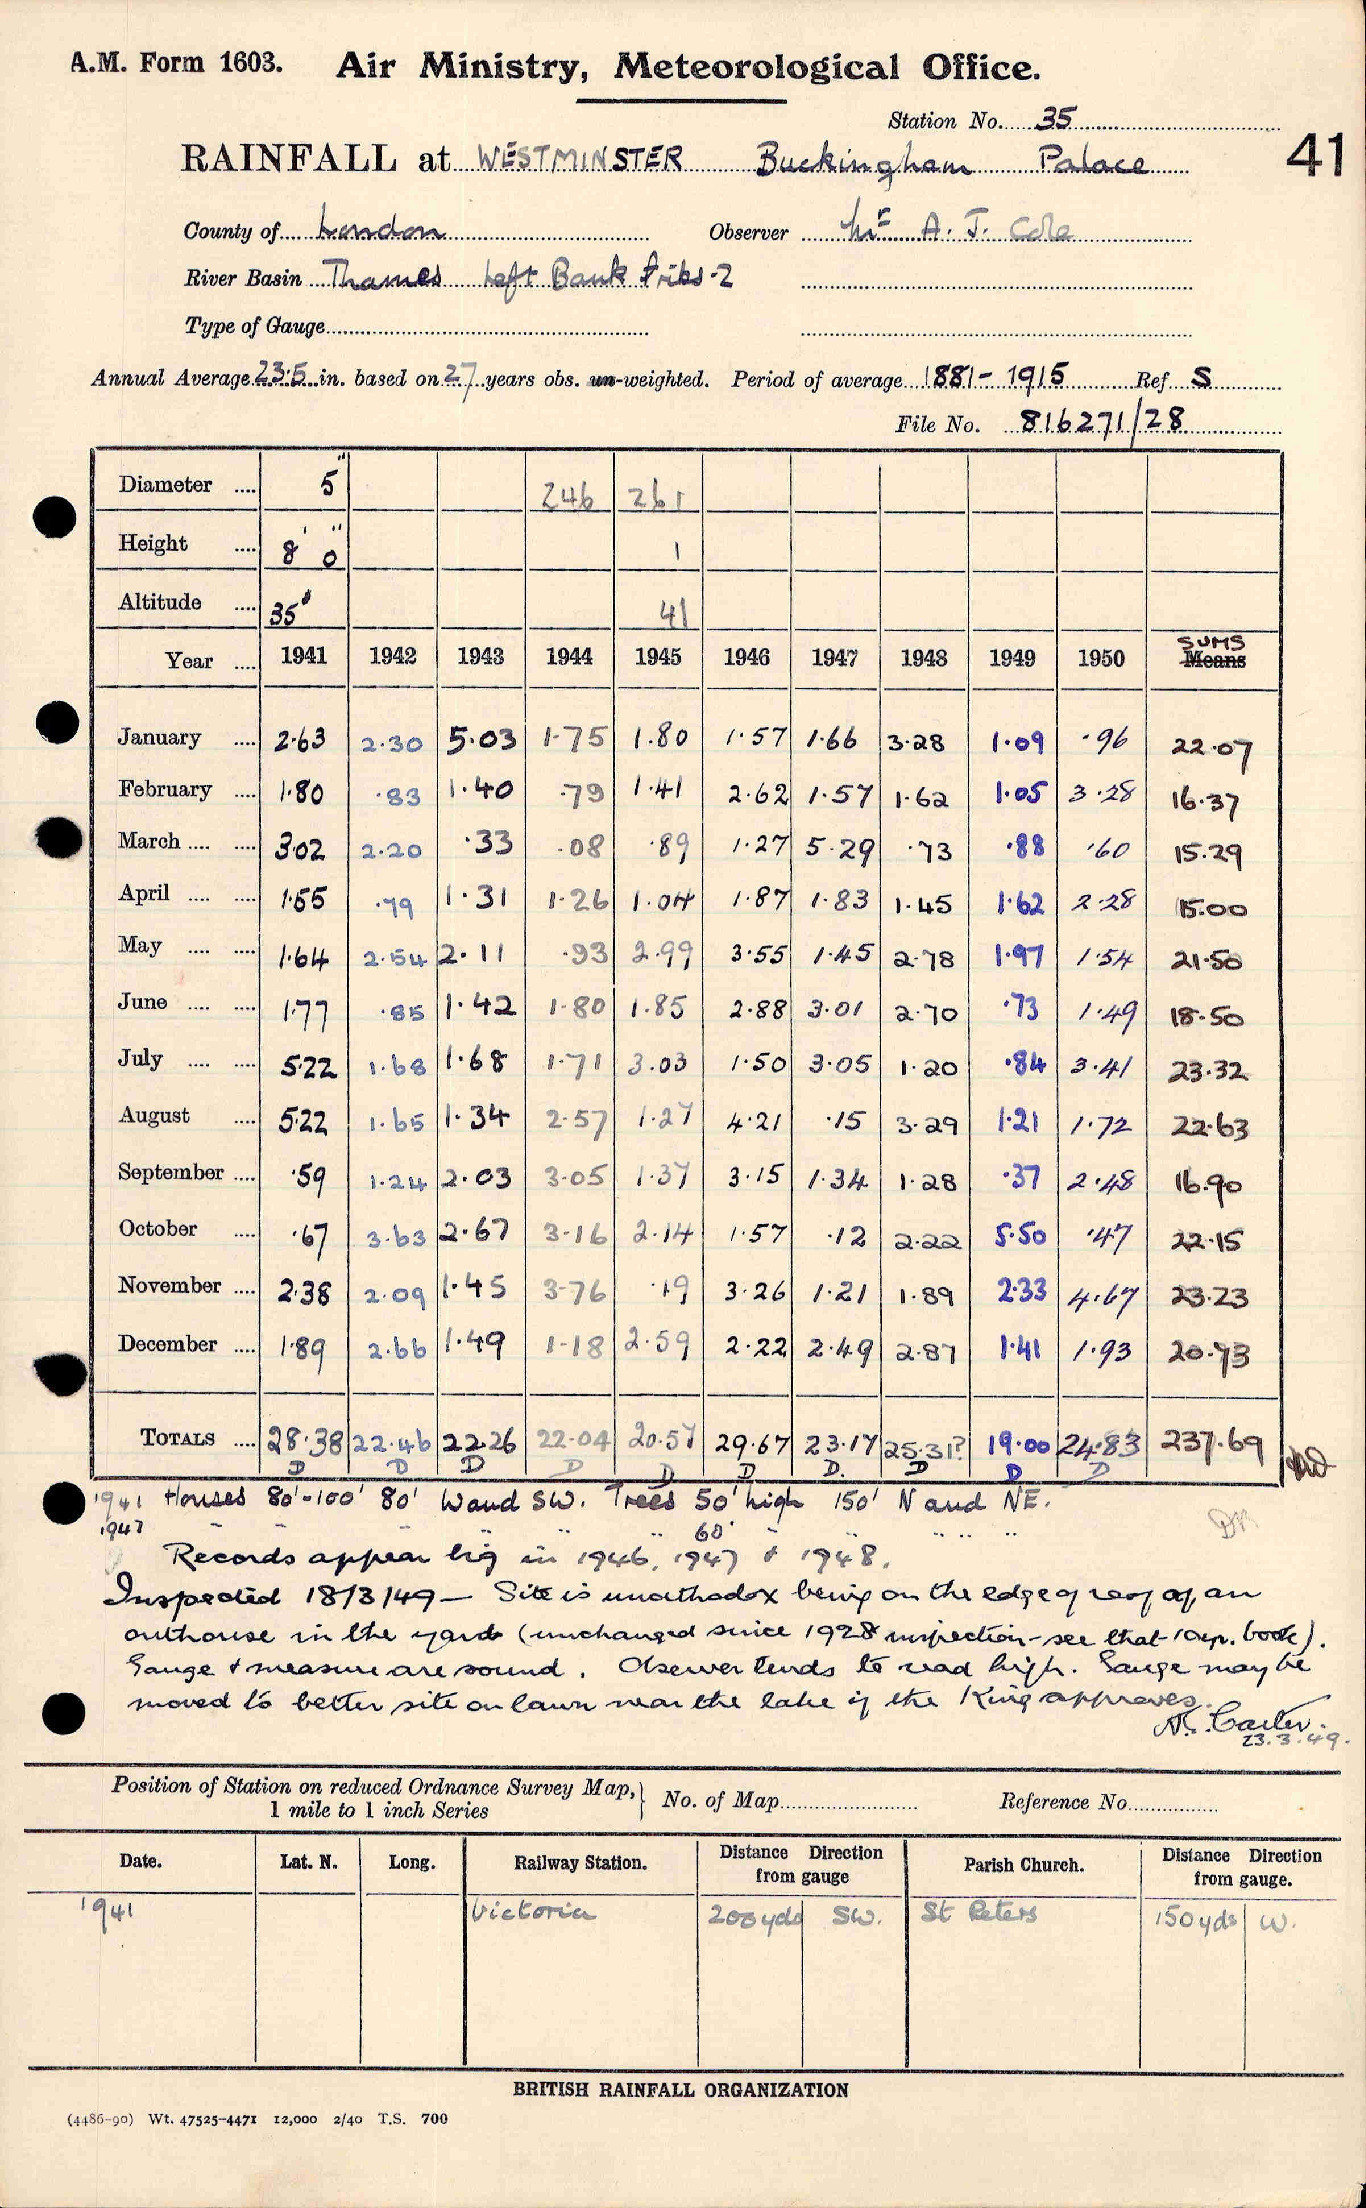 A.M. Form 1603. Air Ministry, Meteorological Office.
Station No. 35
41
RAINFALL at WESTMINSTER Buckingham Palace
County of London Observer Mr A. J. Cole
River Basin Thames Left Bank Tribs-2
Type of Gauge
Annual Average 23.5 in. based on 27 years obs. un-weighted. Period of average 1881-1915 Ref S
File No. 816271/28
Diameter .... 5" 246 261
Height .... 8' 0" 1
Altitude .... 35' 41
Year .... 1941 1942 1943 1944 1945 1946 1947 1948 1949 1950 SUMS Means
January .... 2.63 2.30 5.03 1.75 1.80 1.57 1.66 3.28 1.09 .96 22.07
February .... 1.80 .83 1.40 .79 1.41 2.62 1.57 1.62 1.05 3.28 16.37
March .... .... 3.02 2.20 .33 .08 .89 1.27 5.29 .73 .88 .60 15.29
April .... .... 1.55 .79 1.31 1.26 1.04 1.87 1.83 1.45 1.62 2.28 15.00
May .... .... 1.64 2.54 2.11 .93 2.99 3.55 1.45 2.78 1.97 1.54 21.50
June .... .... 1.77 .85 1.42 1.80 1.85 2.88 3.01 2.70 .73 1.49 18.50
July .... .... 5.22 1.68 1.68 1.71 3.03 1.50 3.05 1.20 .84 3.41 23.32
August .... 5.22 1.65 1.34 2.57 1.27 4.21 .15 3.29 1.21 1.72 22.63
September .... .59 1.24 2.03 3.05 1.37 3.15 1.34 1.28 .37 2.48 16.90
October .... .67 3.63 2.67 3.16 2.14 1.57 .12 2.22 5.50 .47 22.15
November .... 2.38 2.09 1.45 3.76 .19 3.26 1.21 1.89 2.33 4.67 23.23
December .... 1.89 2.66 1.49 1.18 2.59 2.22 2.49 2.87 1.41 1.93 20.73
TOTALS .... 28.38 22.46 22.26 22.04 20.57 29.67 23.17 25.31? 19.00 24.83 237.69
D D D D D D D. D D D
1941 Houses 80'-100' 80' W and SW. Trees 50' high 150' N and NE.
1947 " " " " " 60' " " " " "
Records appear big in 1946, 1947 & 1948.
Inspected 18/3/49 - Site is unorthodox being on the edge of roof of an
outhouse in the yard (unchanged since 1928 inspection - see that insp. book).
Gauge & measure are sound. Observer tends to read high. Gauge may be
moved to better site on lawn near the lake if the King approves.
N. Carter.
23.3.49.
Position of Station on reduced Ordnance Survey Map, 1 mile to 1 inch Series } No. of Map Reference No.
Date. Lat. N. Long. Railway Station. Distance Direction from gauge Parish Church. Distance Direction from gauge.
1941 Victoria 200 yds SW. St Peters 150 yds W.
BRITISH RAINFALL ORGANIZATION
(4486-90) Wt. 47525-4471 12,000 2/40 T.S. 700